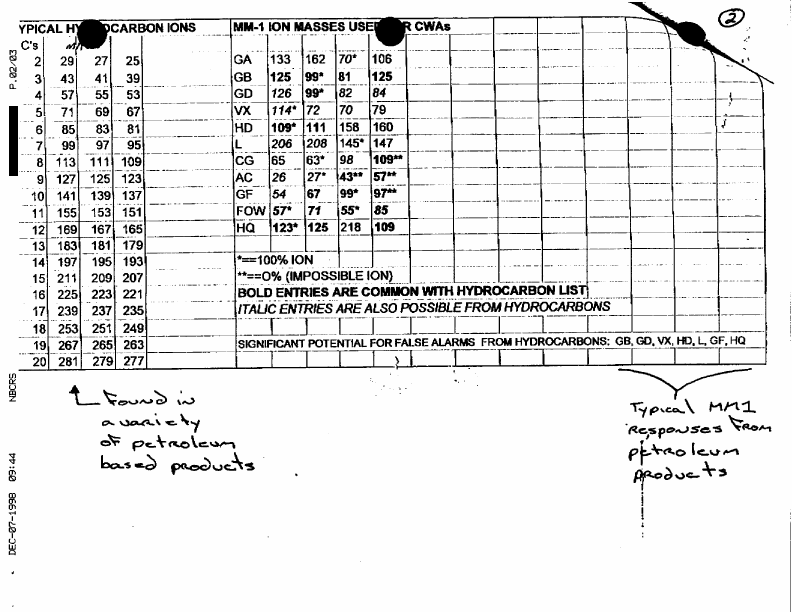 2
YPICAL HY CARBON IONS MM-1 ION MASSES USE R CWAs
C's
2 29 27 25 GA 133 162 70* 106
3 43 41 39 GB 125 99* 81 125
4 57 55 53 GD 126 99* 82 84
5 71 69 67 VX 114* 72 70 79
6 85 83 81 HD 109* 111 158 160
7 99 97 95 L 206 208 145* 147
8 113 111 109 CG 65 63* 98 109**
9 127 125 123 AC 26 27* 43** 57**
10 141 139 137 GF 54 67 99* 97**
11 155 153 151 FOW 57* 71 55* 85
12 169 167 165 HQ 123* 125 218 109
13 183 181 179
14 197 195 193 *==100% ION
15 211 209 207 **==0% (IMPOSSIBLE ION)
16 225 223 221 BOLD ENTRIES ARE COMMON WITH HYDROCARBON LIST
17 239 237 235 ITALIC ENTRIES ARE ALSO POSSIBLE FROM HYDROCARBONS
18 253 251 249
19 267 265 263 SIGNIFICANT POTENTIAL FOR FALSE ALARMS FROM HYDROCARBONS: GB, GD, VX, HD, L, GF, HQ
20 281 279 277
Found in
a variety
of petroleum
based products
Typical MM1
Responses From
petroleum
products
P.02/03
NBCRS
DEC-07-1998 09:44